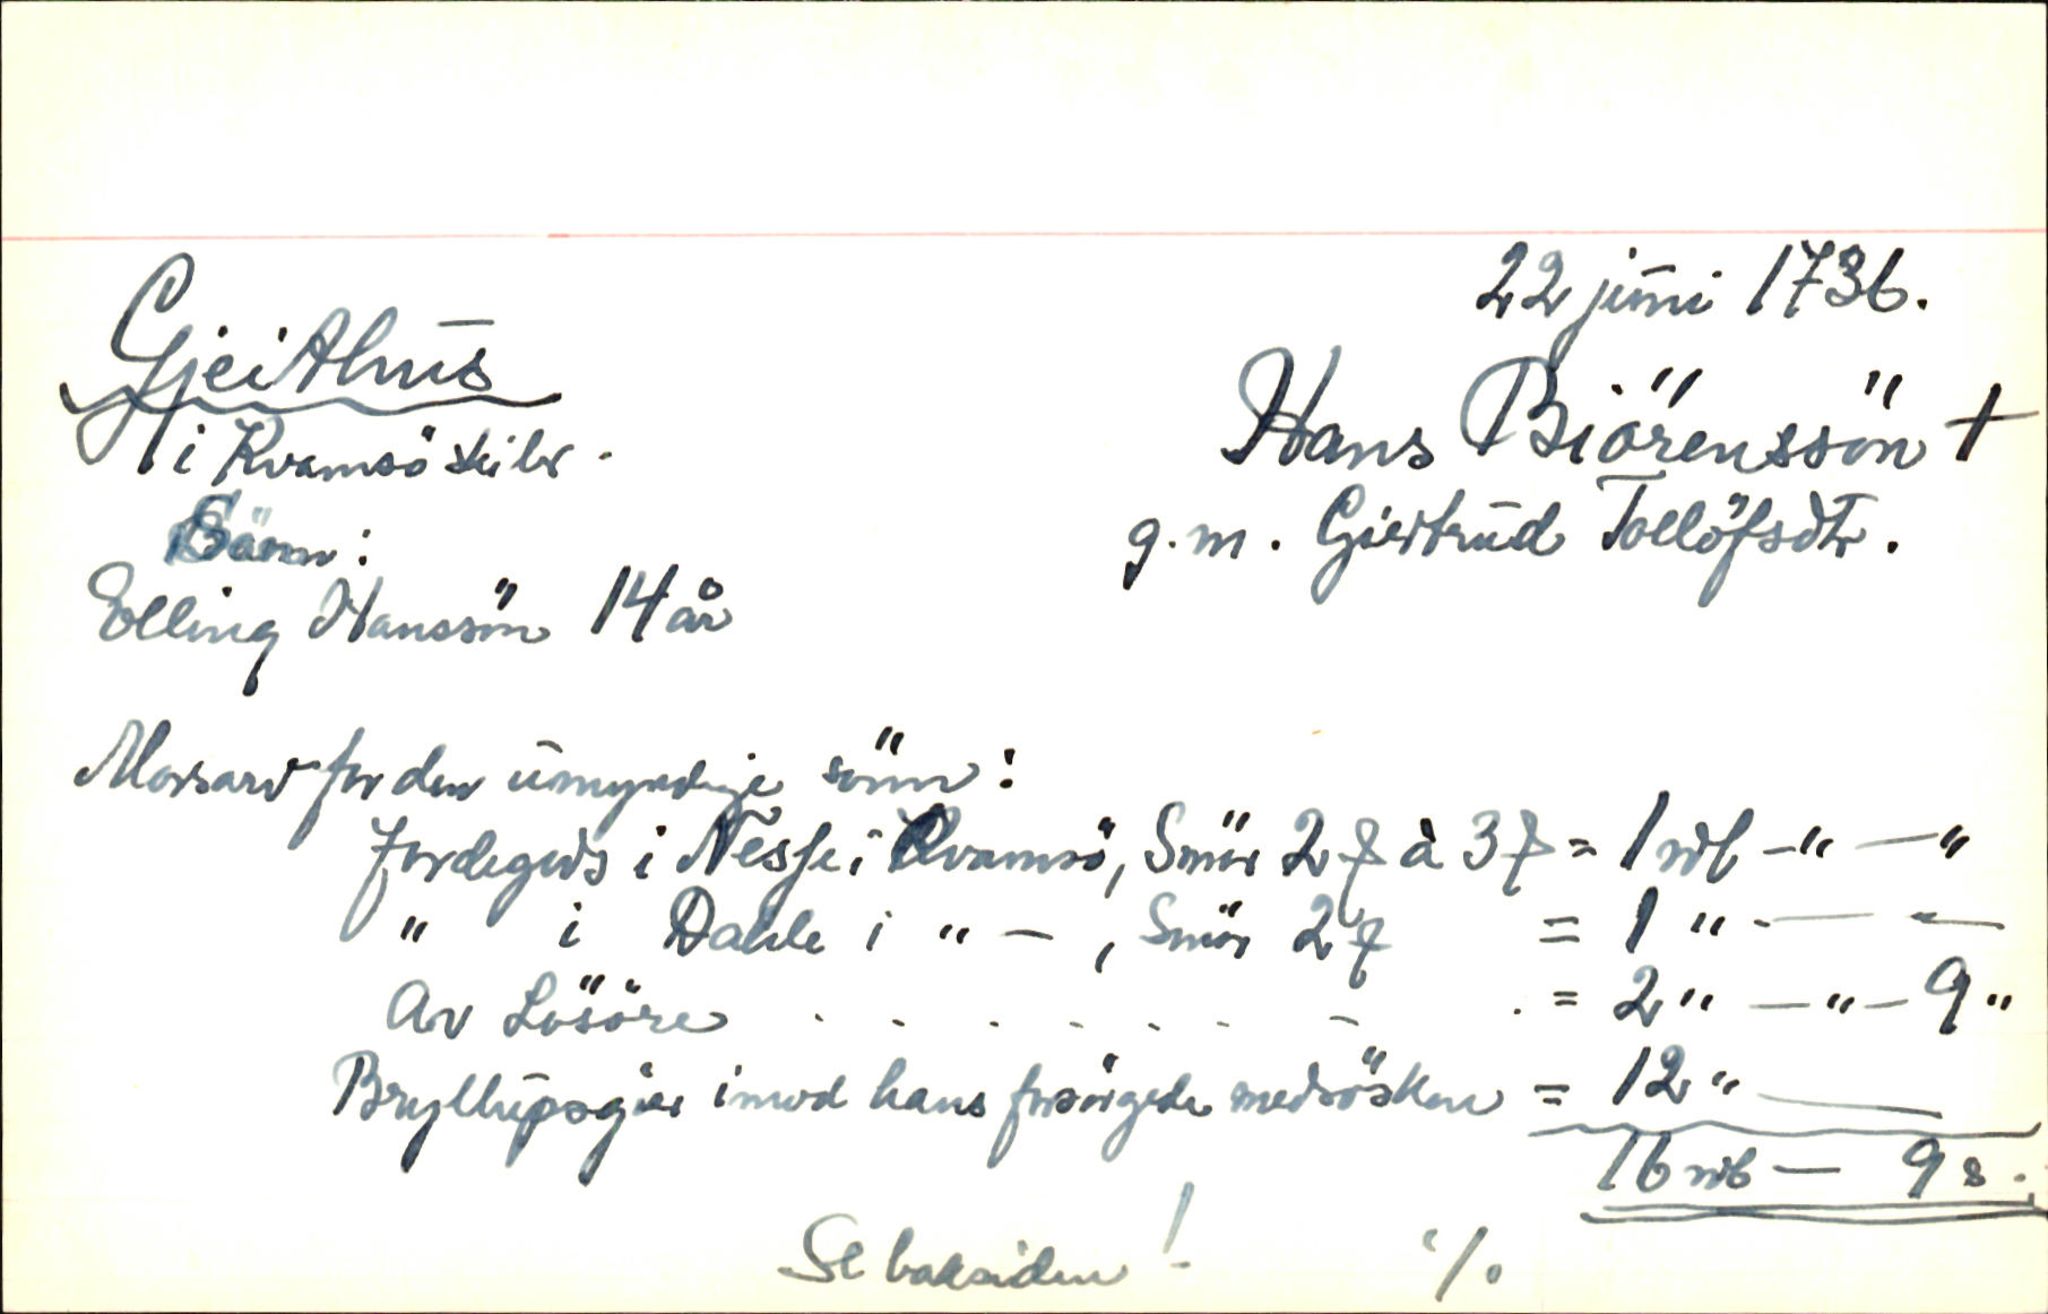 22 juni 1736.
Gjeithus
Hans Biörensson †
i Kvamsö skibr.
g. m. Giertrud Tollöfsdtr.
Börn:
Elling Hanssön 14 år
Morsarv for den umyndige sönn:
Jordegods i Nesse i Kvamsö, Smör 2 à 3 = 1 rdl -"-"
" i Dahle i " -, Smör 2 = 1 " - " -
Av Lösöre . . . . . . . = 2 " - " - 9 "
Bryllupsgier imod hans forsörgede medsösken = 12 "
16 rdl - 9 s.
Se baksiden! ./.